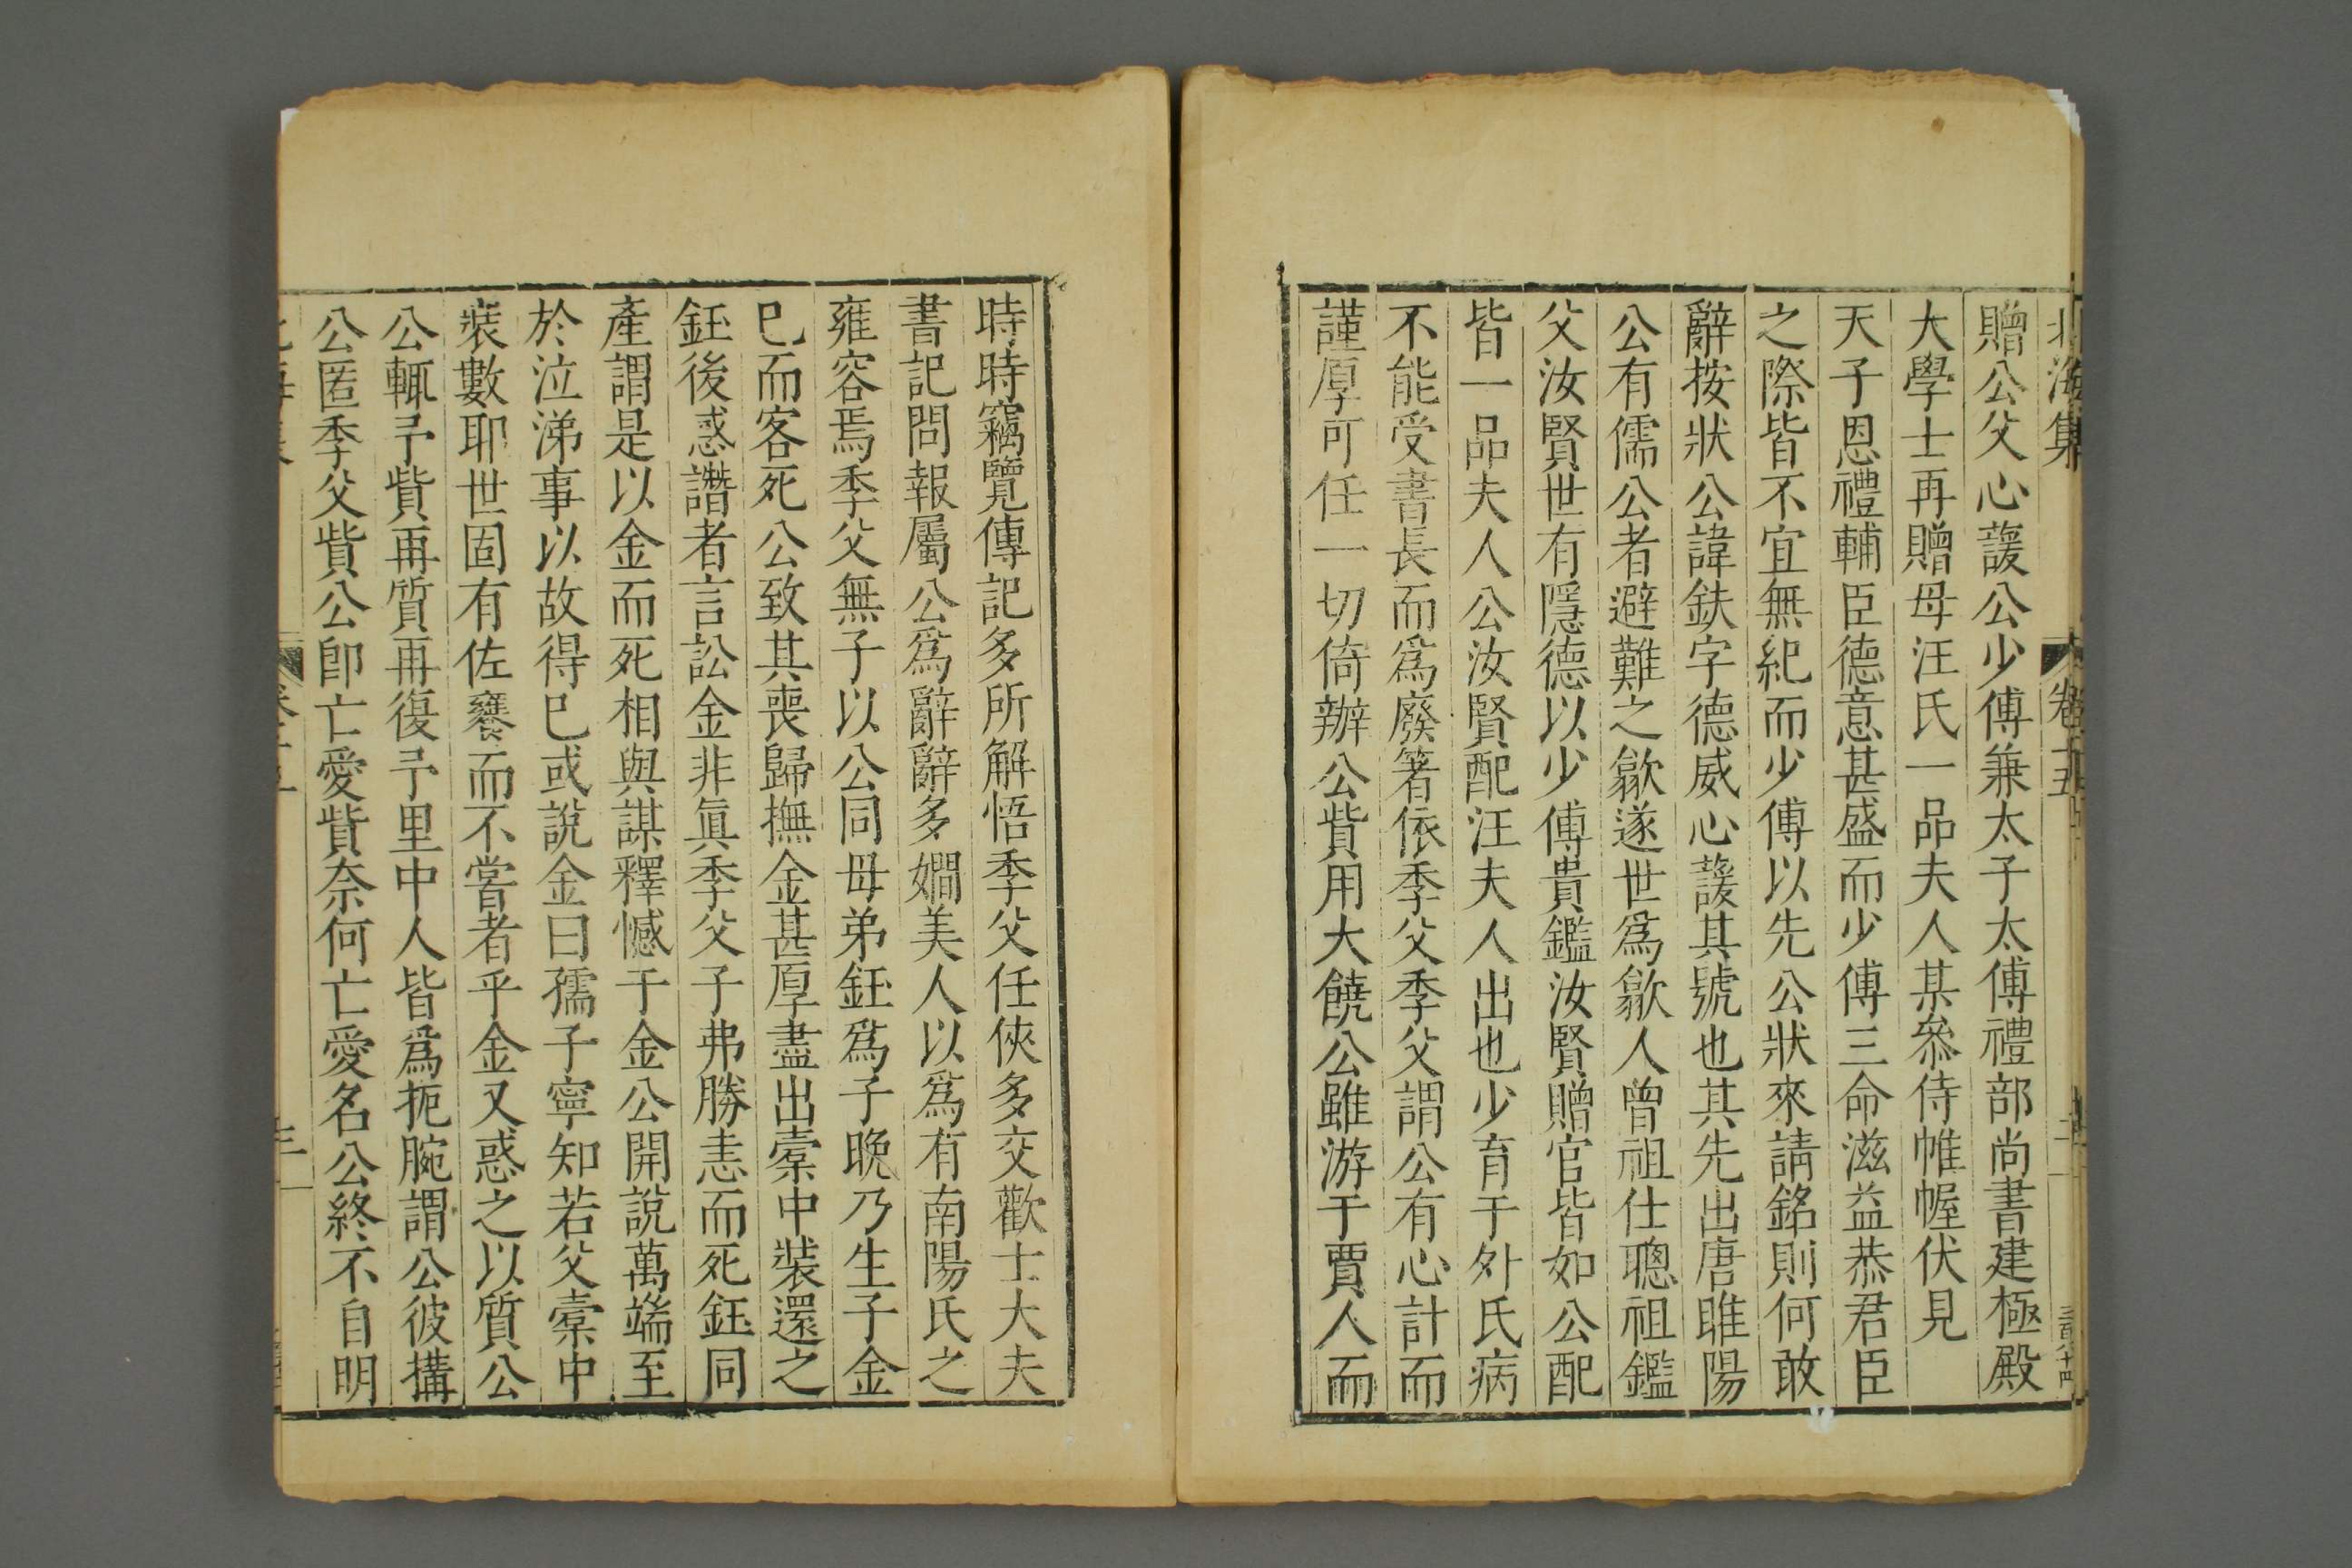 北海集
卷十五
二
贈公父心護公少傅兼太子太傅禮部尚書建極殿
大學士再贈母汪氏一品夫人某叅侍帷幄伏見
天子恩禮輔臣德意甚盛而少傅三命滋益恭君臣
之際皆不宜無紀而少傅以先公狀來請銘則何敢
辭按狀公諱鈇字德威心護其號也其先出唐睢陽
公有儒公者避難之歙遂世爲歙人曾祖仕聰祖鑑
父汝賢世有隱德以少傅貴鑑汝賢贈官皆如公配
皆一品夫人公汝賢配汪夫人出也少育于外氏病
不能受書長而爲廢箸依季父季父謂公有心計而
謹厚可任一切倚辦公貲用大饒公雖游于賈人而
時時竊覽傳記多所解悟季父任俠多交歡士大夫
書記問報屬公爲辭辭多嫺美人以爲有南陽氏之
雍容焉季父無子以公同母弟鈺爲子晩乃生子金
已而客死公致其喪歸撫金甚厚盡出橐中裝還之
鈺後惑譖者言訟金非眞季父子弗勝恚而死鈺同
產謂是以金而死相與謀釋憾于金公開說萬端至
於泣涕事以故得已或說金曰孺子寧知若父橐中
裝數耶世固有佐饔而不嘗者乎金又惑之以質公
公輒予貲再質再復予里中人皆爲扼腕謂公彼搆
公匿季父貲公卽亡愛貲奈何亡愛名公終不自明
三